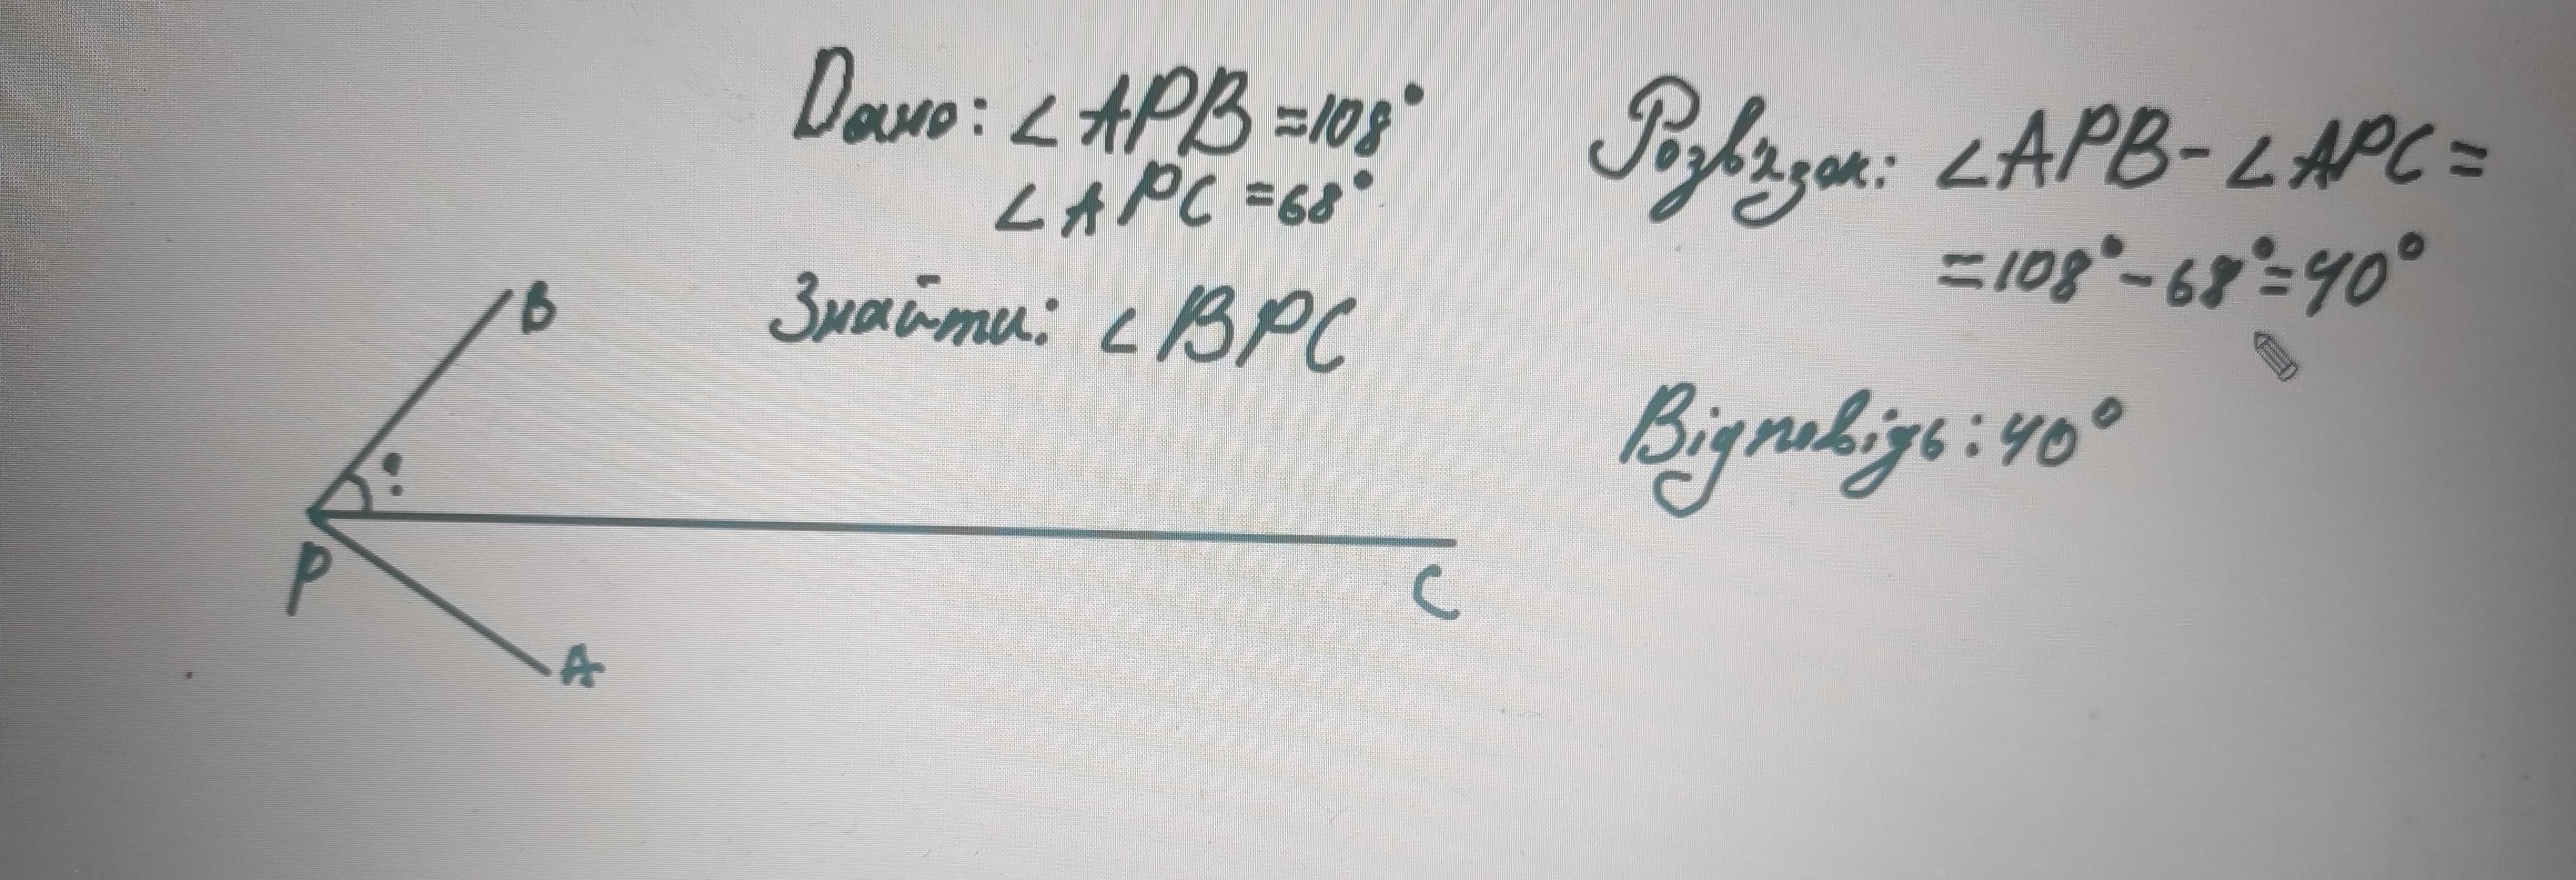 Дано: ∠APB = 108°
∠APC = 68°
Знайти: ∠BPC
Розв'язок: ∠APB - ∠APC =
= 108° - 68° = 40°
Відповідь: 40°
B
?
P
C
A